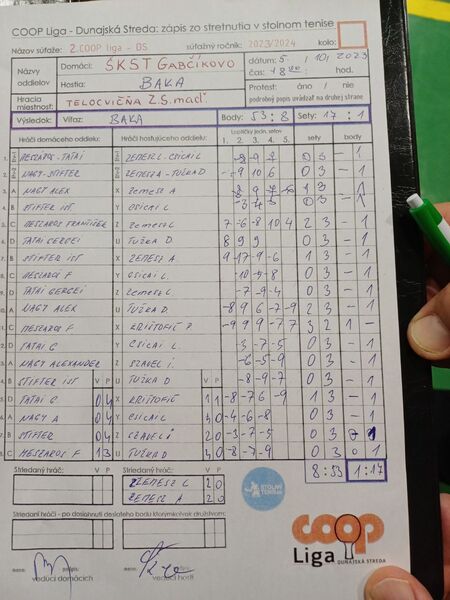 COOP Liga - Dunajská Streda: zápis zo stretnutia v stolnom tenise
Názov súťaže: 2.COOP liga - DS súťažný ročník: 2023/2024 kolo:
Názvy oddielov Domáci: ŠKST GABČÍKOVO dňa: 5. /10, 2023
Hostia: BAKA čas: 18 00 hod.
Hracia miestnosť TELOCVIČŇA Z.Š. maď. Protest: áno / nie
podrobný popis uvádzať na druhej strane
Výsledok: Víťaz: BAKA Body: 53 : 8 Sety: 17 : 1
Hráči domáceho oddielu: Hráči hosťujúceho oddielu: Loptičky jedn. setov sety body
1. 2. 3. 4. 5.
MESZAROS-TATAI ZEMESZ L-CSICAI L 0 3 - 1
NAGY-STIFTER ZEMESZ A-TUŽKA D -9 10 6 0 3 - 1
A NAGY ALEX X ZEMESZ A 1 3 - 1
B STIFTER IST Y CSICAI L 0 3 - 1
C MESZAROS FRANTIŠEK Z ZEMESZ L 7 -6 -8 10 4 2 3 - 1
D TATAI GERGEI U TUŽKA D 8 9 9 0 3 - 1
B STIFTER IST X ZEMESZ A 9 -17 -9 -6 1 3 - 1
C MESZAROS F Y CSICAI L -10 -5 -8 0 3 - 1
D TATAI GERGEI Z ZEMESZ L -7 -9 -4 0 3 - 1
A NAGY ALEX U TUŽKA D -8 9 6 -7 -9 2 3 - 1
C MESZAROS F X KRIŠTOFIČ P -9 9 9 -7 7 3 2 1 -
D TATAI G Y CSICAI L -3 -7 -5 0 3 - 1
A NAGY ALEXANDER Z SZAVEL I. -6 -5 -9 0 3 - 1
B STIFTER IST V P U TUŽKA D V P -8 -9 -7 0 3 - 1
D TATAI G 0 4 X KRIŠTOFIČ 1 1 -8 -7 6 -9 1 3 - 1
A NAGY A 0 4 Y CSICAI L 4 0 -4 -6 -8 0 3 - 1
B STIFTER 0 4 Z SZAVEL I 2 0 -3 -7 -5 0 3 1
C MESZAROS F 1 3 U TUŽKA D 4 0 -8 -7 -9 0 3 0 1
Striedaný hráč: V P Striedaný hráč: V P 8:53 1:17
ZEMESZ L 2 0
ZEMESZ A 2 0
STOLNÝ TENIS
Striedaní hráči - po dosiahnutí desiateho bodu ktorýmkoľvek družstvom:
coop
Liga
DUNAJSKÁ STREDA
meno: podpis: meno: podpis:
vedúci domácich vedúci hostí